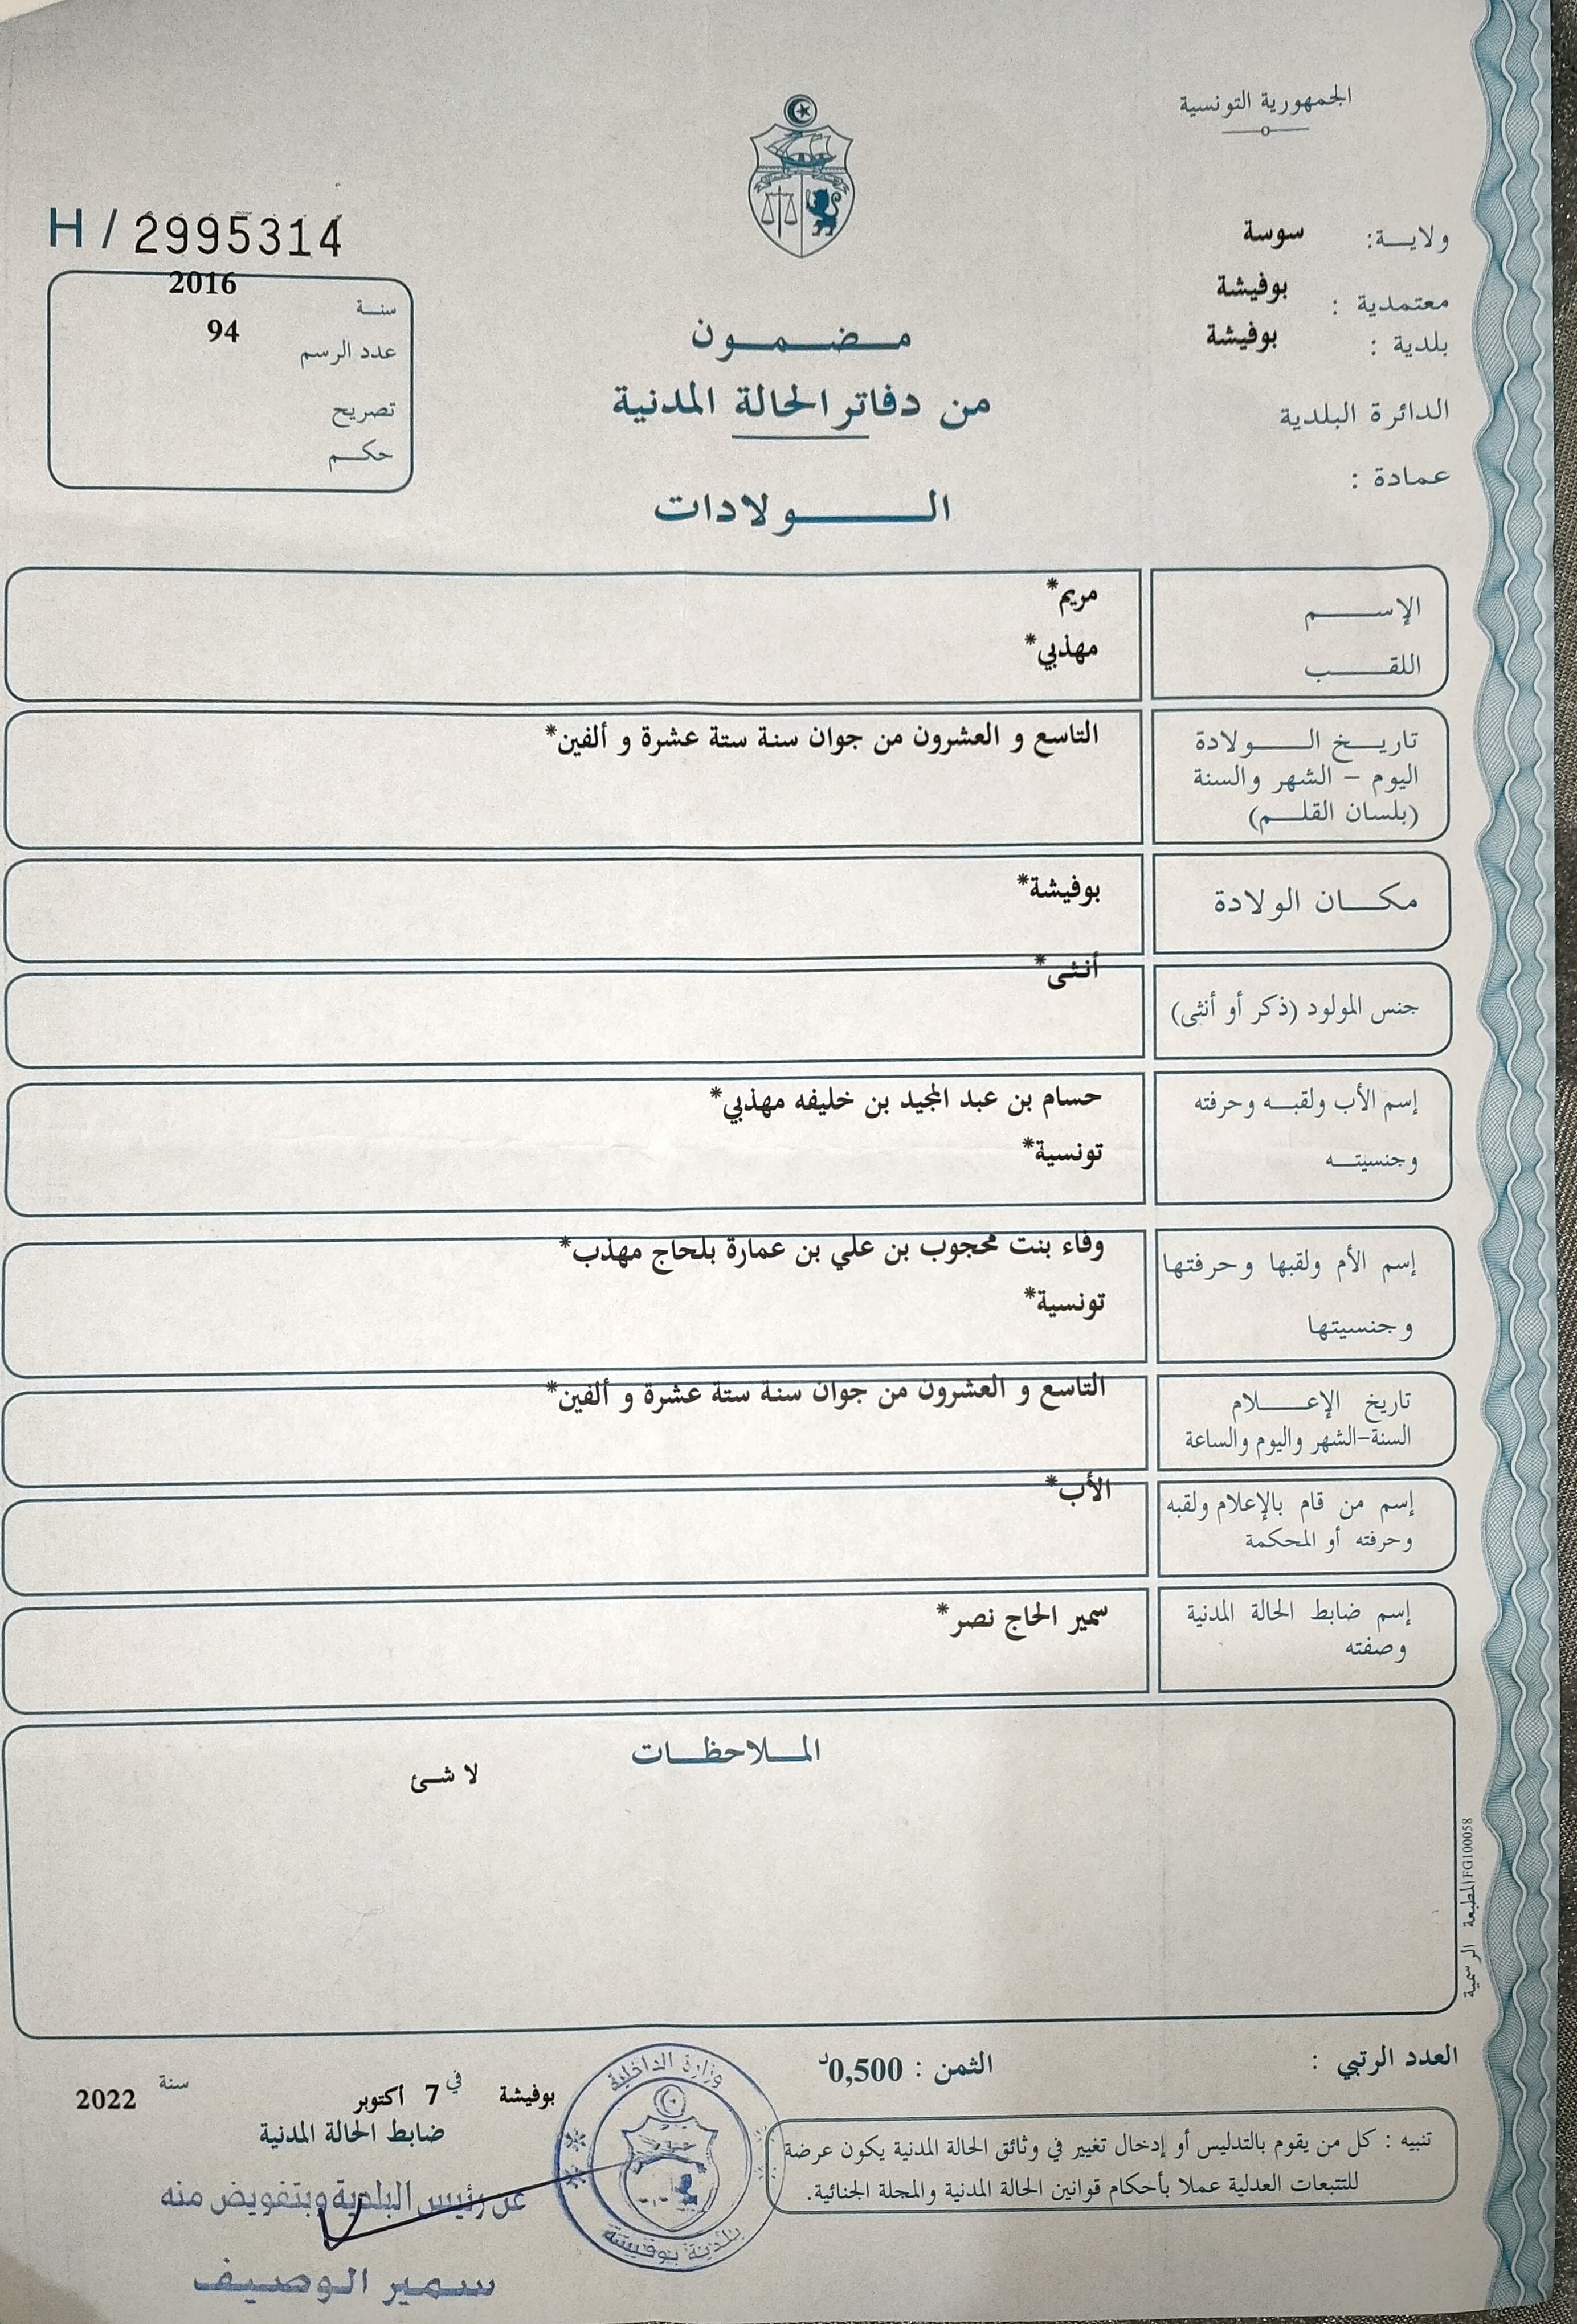 الجمهورية التونسية
ولايـــة: سوسة
معتمدية : بوفيشة
بلدية : بوفيشة
الدائرة البلدية
عمادة :
H / 2995314
سنـة 2016
عدد الرسم 94
تصريح
حكـــم
مــضــمــون
من دفاتر الحالة المدنية
الـــــولادات
الإســـــم مريم*
اللقـــــب مهذبي*
تاريـــخ الـــــولادة التاسع و العشرون من جوان سنة ستة عشرة و ألفين*
اليوم – الشهر والسنة
(بلسان القلـــم)
مكـــان الولادة بوفيشة*
جنس المولود (ذكر أو أنثى) أنثى*
إسم الأب ولقبـــه وحرفته حسام بن عبد المجيد بن خليفه مهذبي*
وجنسيتـــه تونسية*
إسم الأم ولقبها وحرفتها وفاء بنت محجوب بن علي بن عمارة بلحاج مهذب*
وجنسيتها تونسية*
تاريخ الإعـــــلام التاسع و العشرون من جوان سنة ستة عشرة و ألفين*
السنة-الشهر واليوم والساعة
إسم من قام بالإعلام ولقبه الأب*
وحرفته أو المحكمة
إسم ضابط الحالة المدنية سمير الحاج نصر*
وصفته
المـــلاحظـــات
لا شئ
المطبعة الرسمية FG100058
العدد الرتبي :
الثمن : 0,500د
تنبيه : كل من يقوم بالتدليس أو إدخال تغيير في وثائق الحالة المدنية يكون عرضة
للتتبعات العدلية عملا بأحكام قوانين الحالة المدنية والمجلة الجنائية.
بوفيشة في 7 أكتوبر سنة 2022
ضابط الحالة المدنية
عن رئيس البلدية وبتفويض منه
سمير الوصيف
وزارة الداخلية
بلدية بوفيشة